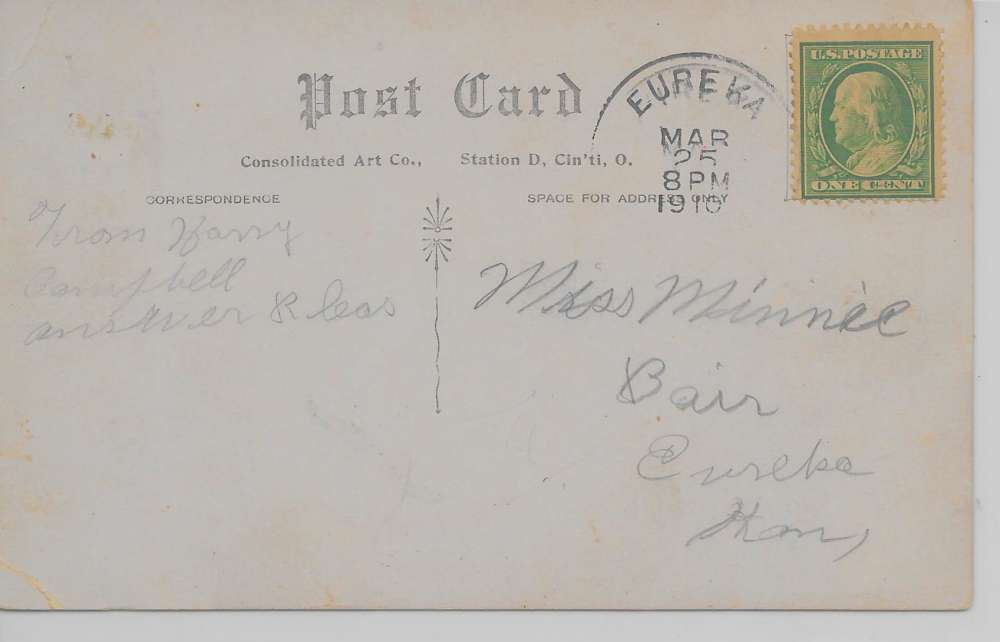 U.S. POSTAGE
ONE CENT
Post Card
EUREKA
MAR
25
8 PM
1910
Consolidated Art Co., Station D, Cin'ti, O.
CORRESPONDENCE
SPACE FOR ADDRESS ONLY
From Harry
Campbell
answer Pleas
Miss Minnie
Bair
Eureka
Kan,